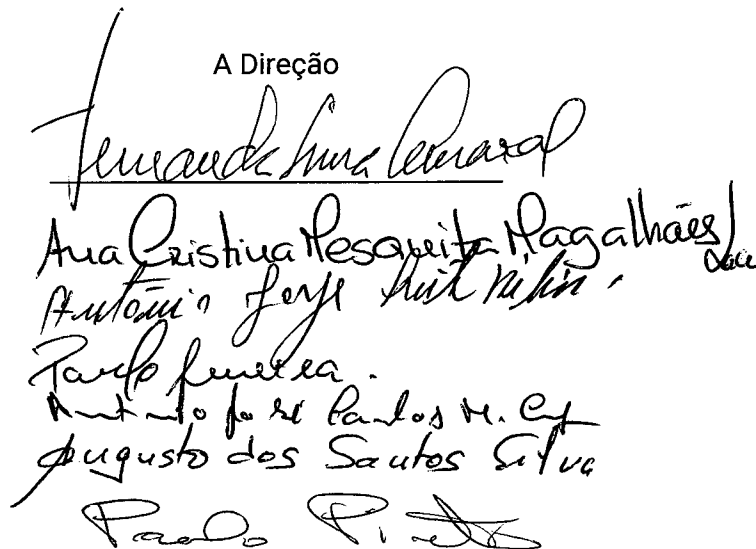 A Direção
Fernanda Amaral
Ana Cristina Mesquita Magalhães
António Jorge
Paulo Ferreira.
António José Carlos M.
Augusto dos Santos Silva
Paulo Pinto